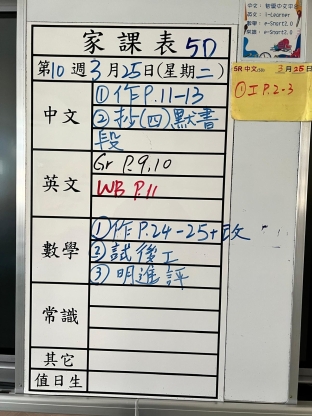 家課表 5D
第10週3月25日(星期二)
中文
①作P.11-13
②抄(四)默書
段
英文
Gr P.9,10
WB P.11
數學
①作P.24-25+改
②試後工
③明進評
常識
其它
值日生
中文:智愛中文平台
英文: i-Learner
數學: e-Smart2.0
常識: e-Smart2.0
5R 中文 3月25日
①工P.2-3